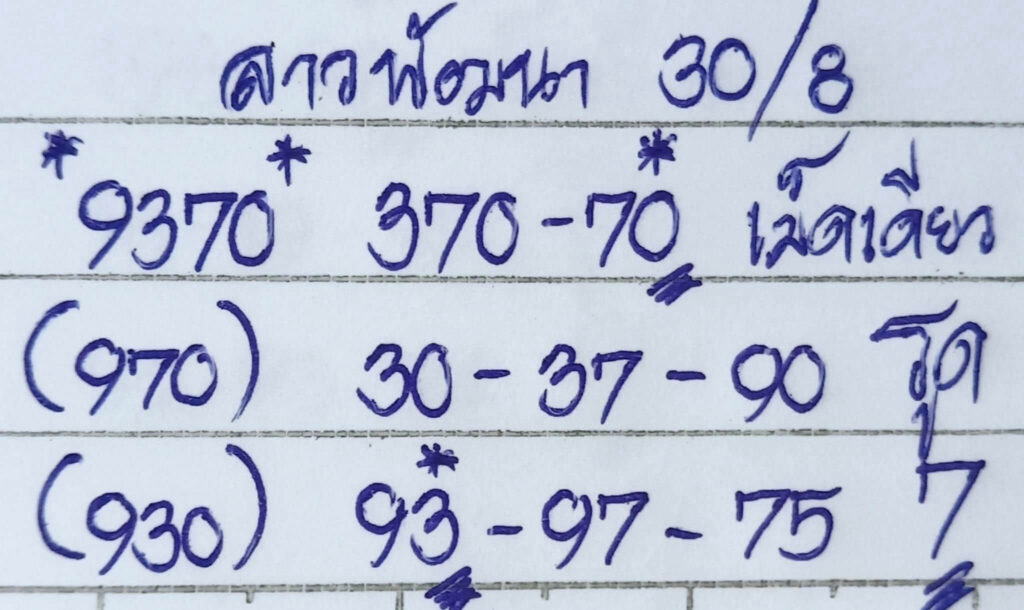 ลาวพัฒนา 30/8
*9370* 370-70* เม็ดเดียว
(970) 30-37-90 รูด
(930) 93*-97-75 7